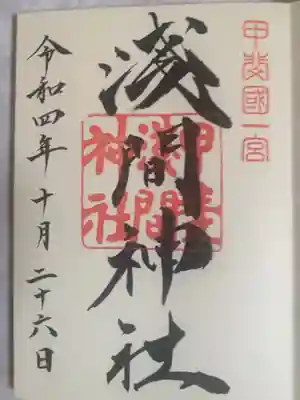 甲斐國一宮
淺間神社
甲斐國
淺間
神社
令和四年十月二十六日